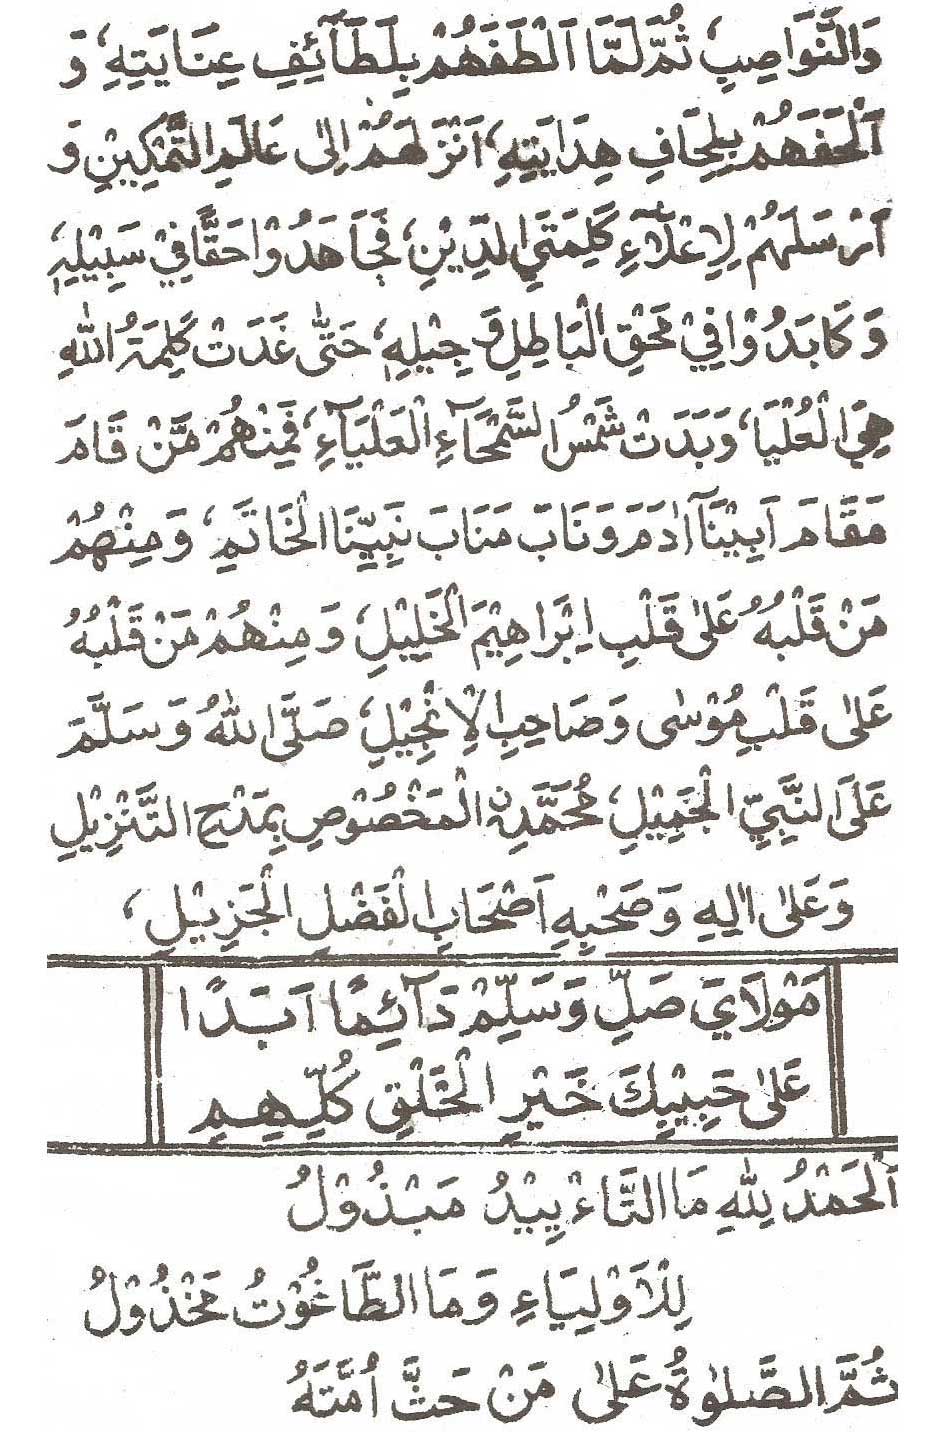 وَالنَّوَاصِبِ، ثُمَّ لَمَّا اَلْطَفَهُمْ بِلَطَآئِفِ عِنَايَتِهِ، وَ
اَلْحَفَهُمْ بِلِحَافِ هِدَايَتِهِ، اَنْزَلَهُمْ اِلٰى عَالَمِ التَّمْكِيْنِ وَ
اَرْسَلَهُمْ لِاِعْلَآءِ كَلِمَتَيِ الدِّيْنِ، فَجَاهَدُوْا حَقًّا فِيْ سَبِيْلِهِ،
وَكَابَدُوْا فِيْ مَحْقِ الْبَاطِلِ وَجِيْلِهِ، حَتّٰى غَدَتْ كَلِمَةُ اللّٰهِ
هِيَ الْعُلْيَا، وَبَدَتْ شَمْسُ السَّمْحَآءِ الْعَلْيَآءِ، فَمِنْهُمْ مَّنْ قَامَ
مَقَامَ اَبِيْنَآ اٰدَمَ وَنَابَ مَنَابَ نَبِيِّنَا الْخَاتَمِ، وَمِنْهُمْ
مَنْ قَلْبُهُ عَلٰى قَلْبِ اِبْرَاهِيْمَ الْخَلِيْلِ، وَمِنْهُمْ مَنْ قَلْبُهُ
عَلٰى قَلْبِ مُوْسٰى وَصَاحِبِ الْاِنْجِيْلِ، صَلَّى اللّٰهُ وَسَلَّمَ
عَلَى النَّبِيِّ الْجَمِيْلِ، مُحَمَّدِنِ الْمَخْصُوْصِ بِمَدْحِ التَّنْزِيْلِ
وَعَلٰى اٰلِهِ وَصَحْبِهِ اَصْحَابِ الْفَضْلِ الْجَزِيْلِ،
مَوْلَايَ صَلِّ وَسَلِّمْ دَآئِمًا اَبَدًا
عَلٰى حَبِيْبِكَ خَيْرِ الْخَلْقِ كُلِّهِمِ
اَلْحَمْدُ لِلّٰهِ مَا التَّاءْيِيْدُ مَبْذُوْلُ
لِلْاَوْلِيَاءِ وَمَا الطَّاغُوْتُ مَخْذُوْلُ
ثُمَّ الصَّلٰوةُ عَلٰى مَنْ حَثَّ اُمَّتَهُ